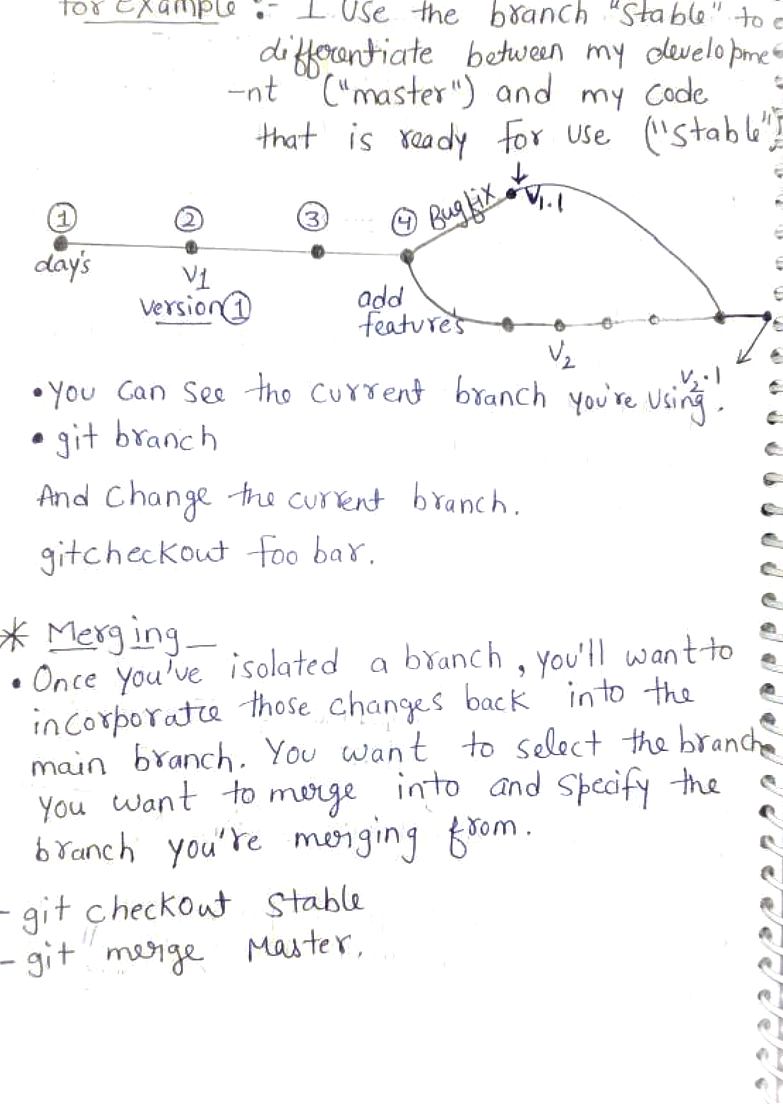 for Example :- I Use the branch "Stable" to
differentiate between my developme
-nt ("master") and my code
that is ready for use ("stable")
① ② ③ ④ Bugfix V1.1
day's
V1
version①
add
features
V2
V2.1
• You can see the current branch you're using.
• git branch
And Change the current branch.
gitcheckout foo bar.
* Merging_
• Once you've isolated a branch, you'll want to
incorporatre those changes back into the
main branch. You want to select the branch
you want to merge into and specify the
branch you're merging from.
- git checkout stable
- git merge Master.